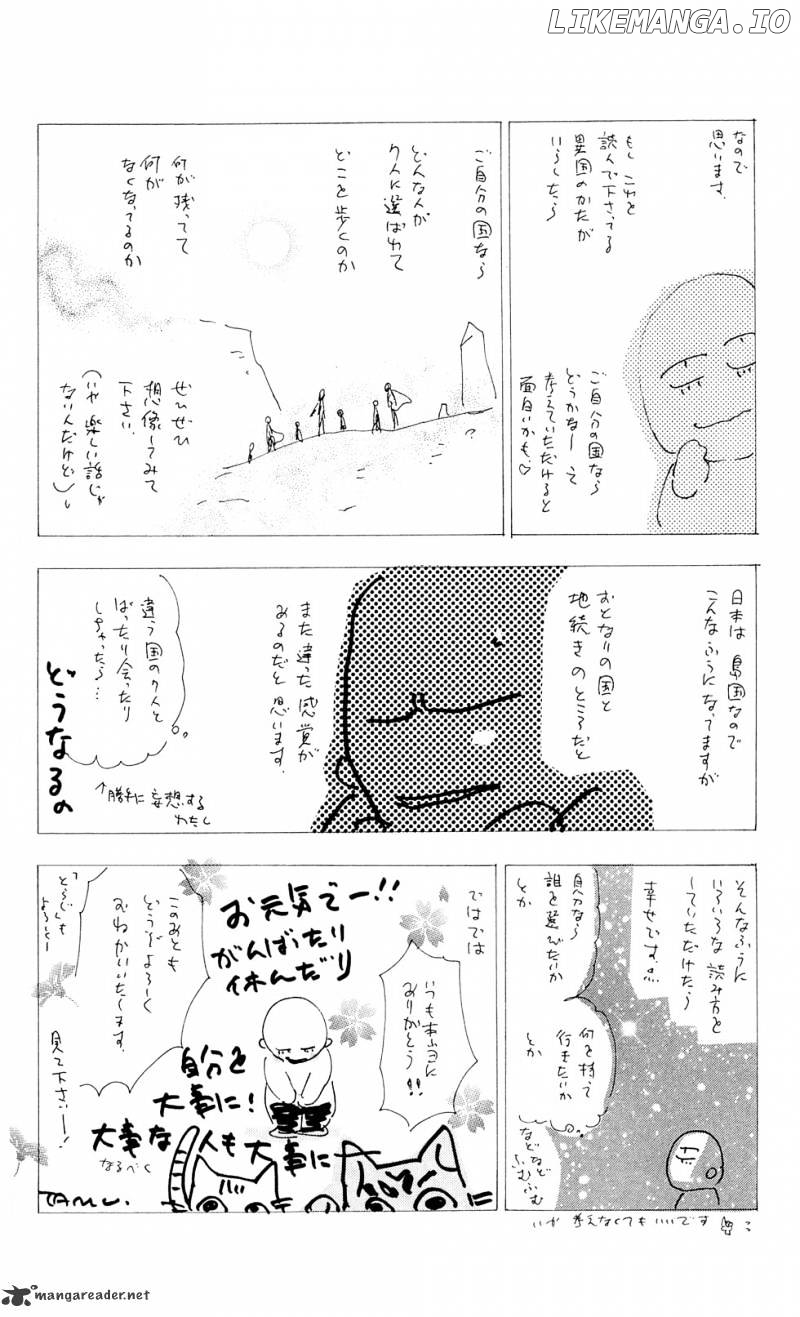 LIKEMANGA.IO
なので
思います。
もし これを
読んで下さってる
異国のかたが
いらしたら
ご自分の国なら
どうかなーって
考えていただけると
面白いかも♡
ご自分の国なら
どんな人が
7人に選ばれて
どこを歩くのか
何が残ってて
何が
なくなってるのか
ぜひぜひ
想像してみて
下さい。
(いや 楽しい話じゃ
ないんだけど)
?
日本は 島国なので
こんなふうになってますが
おとなりの国と
地続きのところだと
また違った感覚が
あるのだと 思います。
違う国の7人と
ばったり会ったり
しちゃったら…
どうなるの
↑勝手に妄想する
わたし
そんなふうに
いろいろな 読み方を
していただけたら
幸せです。
自分なら
誰を選びたいか
とか
何を持って
行きたいか
とか
などなど
ふむふむ
いや 考えなくてもいいです
ではでは
いつも本当に
ありがとう!!
お元気でー!!
がんばったり
休んだり
自分を
大事に!
大事な
人も大事に
なるべく
このあとも
どうぞ よろしく
おねがいいたします。
「とらじ」も
よろしくー
見て下さいー!
TAMU.
mangareader.net